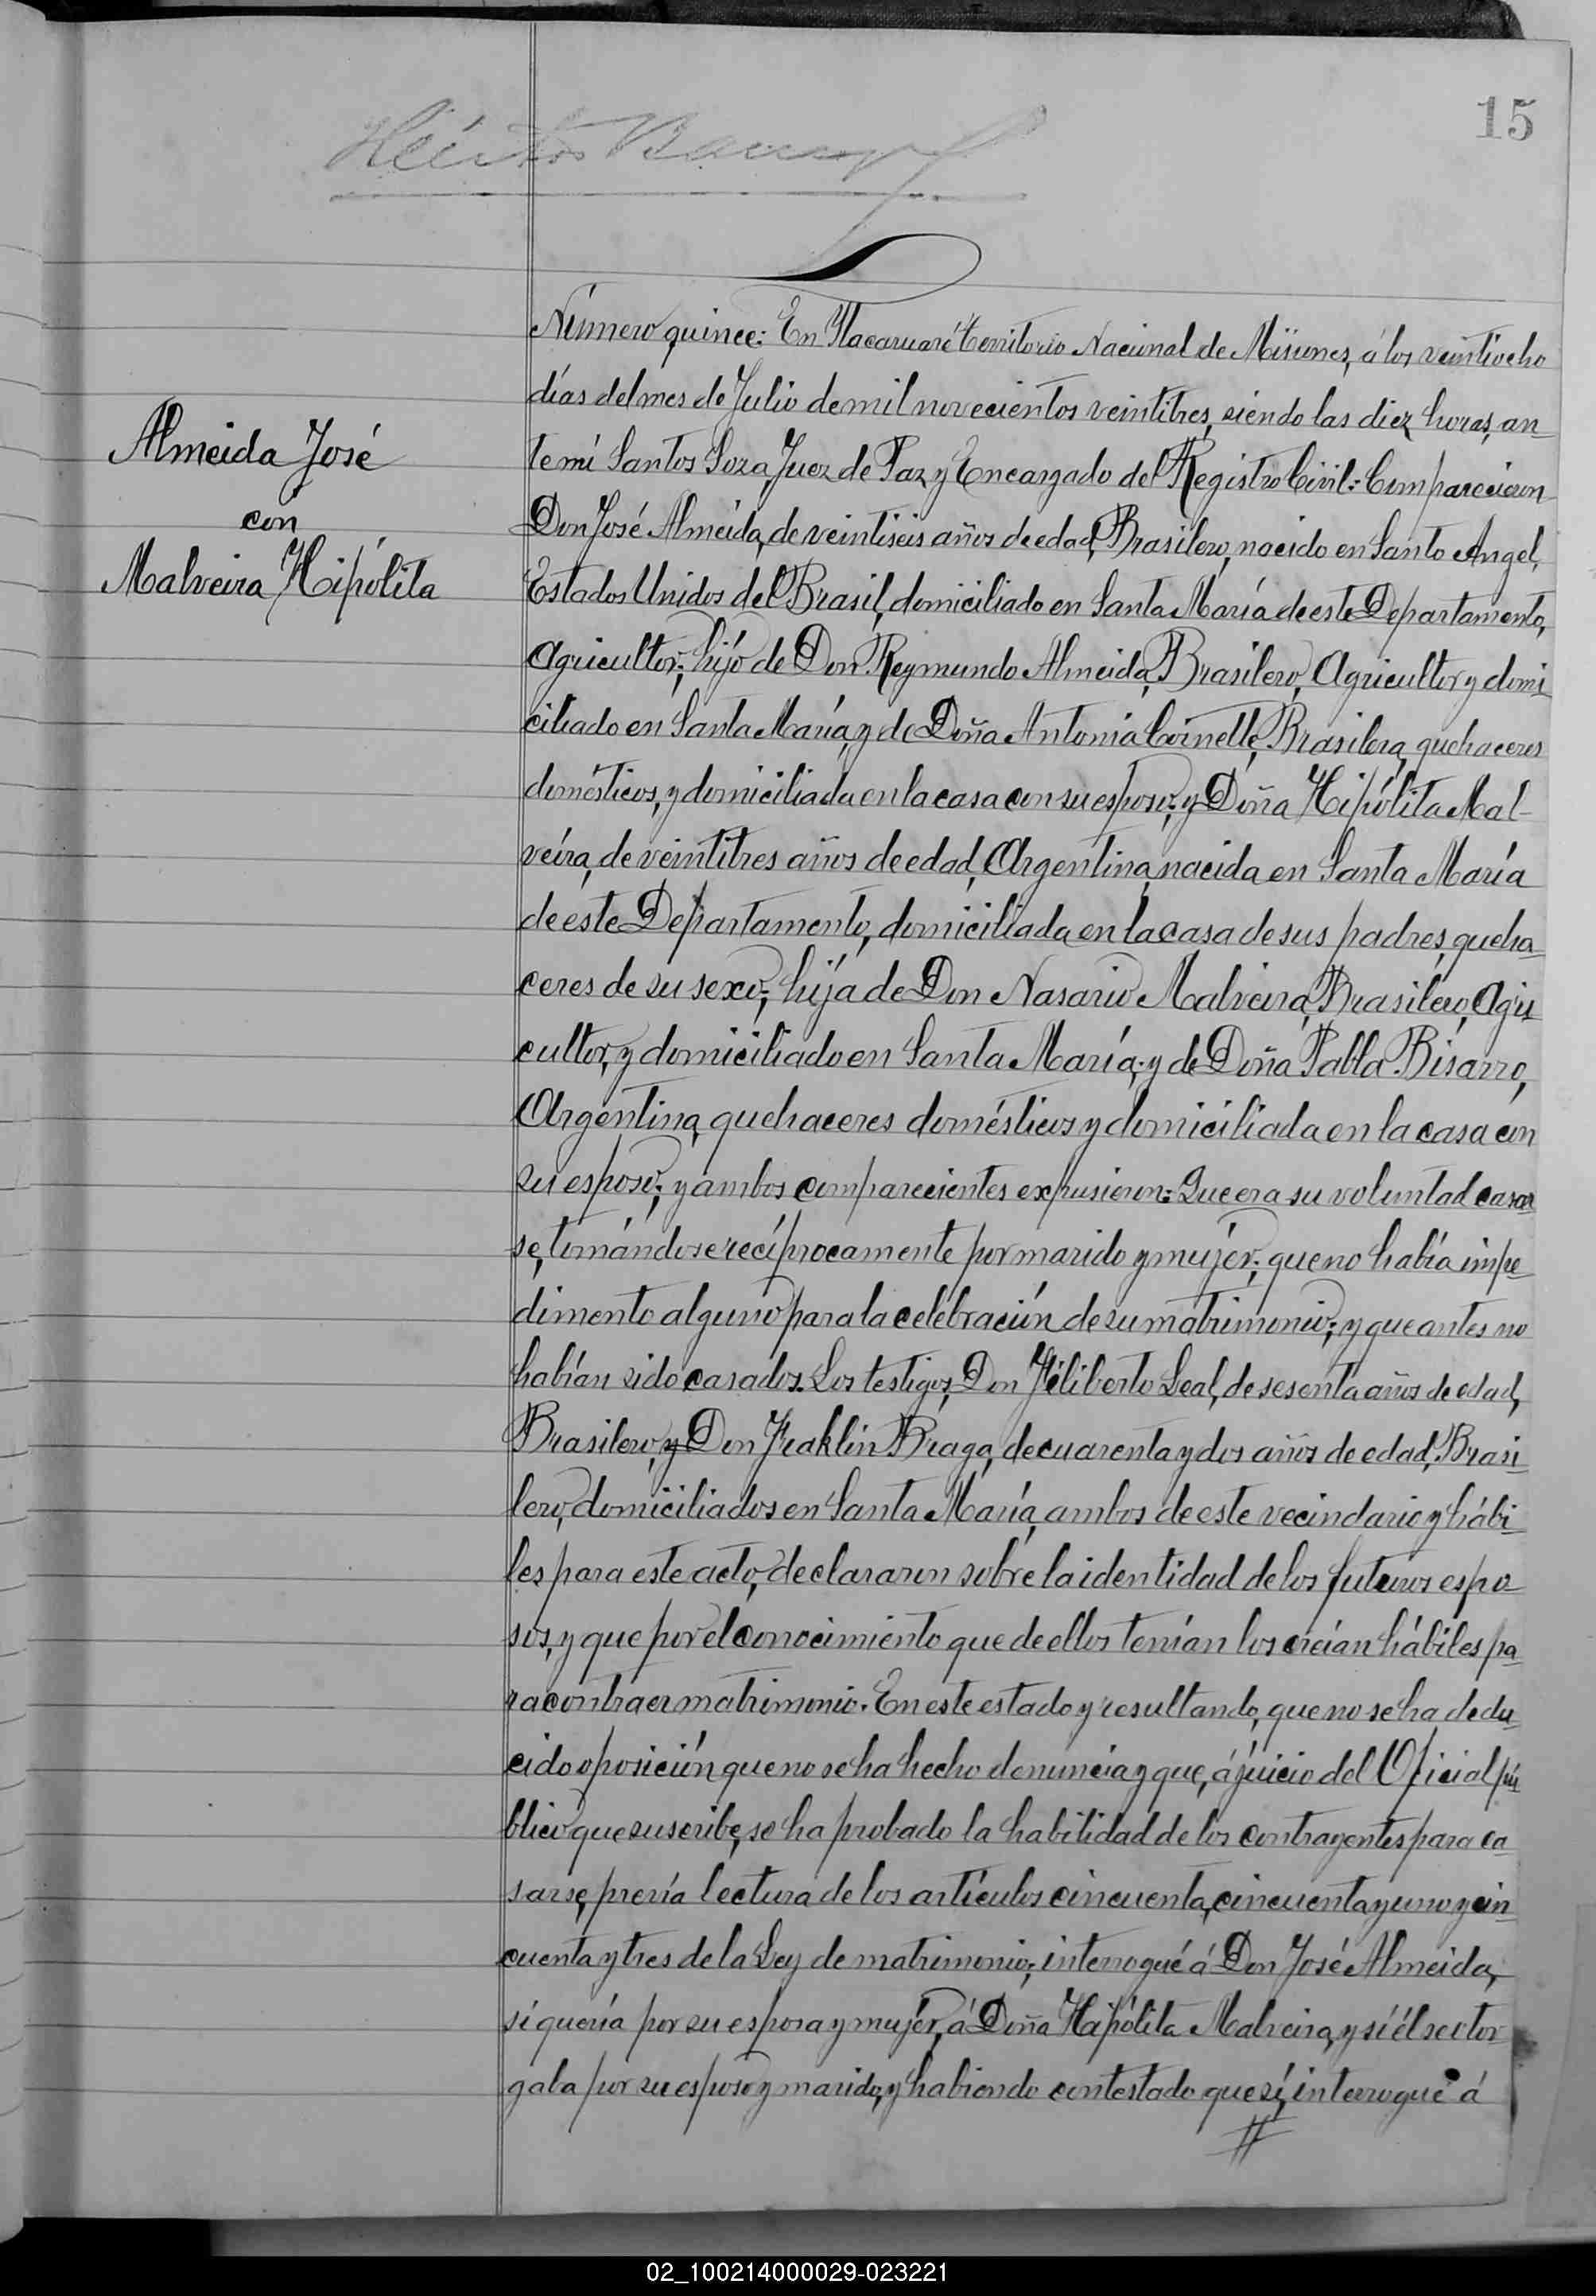 15
Número quince: En Ytacaruaré territorio Nacional de Misiones, á los veintiocho
días del mes de Julio de mil novecientos veintitres, siendo las diez horas, an
Almeida José
con
Malveira Hipólita
te mí Santos Soza Juez de Paz y Encargado del Registro Civil: Comparecieron
Don José Almeida, de veintiseis años de edad, Brasilero, nacido en Santo Angel,
Estados Unidos del Brasil, domiciliado en Santa María de este Departamento,
Agricultor; hijo de Don Reymundo Almeida, Brasilero, Agricultor y domi
ciliado en Santa María, y de Doña Antonia Cornelle, Brasilera, quehaceres
domésticos, y domiciliada en la casa con su esposo; y Doña Hipólita Mal-
veira, de veintitres años de edad, Argentina, nacida en Santa María
de este Departamento, domiciliada en la casa de sus padres, queha
ceres de su sexo; hija de Don Nasario Malveira, Brasilero, Agri
cultor, y domiciliado en Santa María; y de Doña Pabla Bisarro,
Argentina, quehaceres domésticos y domiciliada en la casa con
su esposo; y ambos comparecientes expusieron: Que era su voluntad casar
se, tomándose recíprocamente por marido y mujer; que no había impe
dimento alguno para la celebración de su matrimonio; y que antes no
habían sido casados. Los testigos, Don Filiberto Leal, de sesenta años de edad,
Brasilero, y Don Fraklin Braga, de cuarenta y dos años de edad, Brasi
lero, domiciliados en Santa María, ambos de este vecindario y hábi
les para este acto, declararon sobre la identidad de los futuros espo
sos, y que por el conocimiento que de ellos tenían los creían hábiles pa
ra contraer matrimonio. En este estado y resultando, que no se ha dedu
cido oposición que no se ha hecho denuncia y que, á juicio del Oficial pú
blico que suscribe, se ha probado la habilidad de los contrayentes para ca
sarse, prevía lectura de los artículos cincuenta, cincuenta y uno y cin
cuenta y tres de la Ley de matrimonio; interrogué á Don José Almeida,
sí quería por su esposa y mujer, á Doña Hipólita Malveira, y sí él se otor
gaba por su esposo y marido, y habiendo contestado que sí, interrogué á
02_100214000029-023221